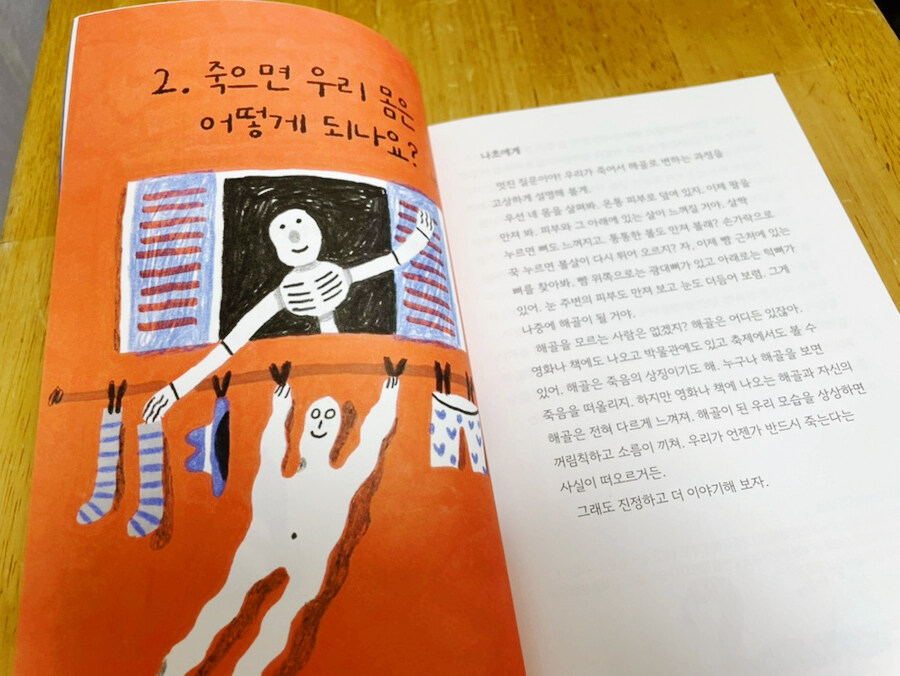 2. 죽으면 우리 몸은
어떻게 되나요?
나초에게
멋진 질문이야! 우리가 죽어서 해골로 변하는 과정을
고상하게 설명해 볼게.
우선 네 몸을 살펴봐. 온통 피부로 덮여 있지. 이제 팔을
만져 봐. 피부와 그 아래에 있는 살이 느껴질 거야. 살짝
누르면 뼈도 느껴지고. 통통한 볼도 만져 볼래? 손가락으로
꾹 누르면 볼살이 다시 튀어 오르지? 자, 이제 뺨 근처에 있는
뼈를 찾아봐. 뺨 위쪽으로는 광대뼈가 있고 아래로는 턱뼈가
있어. 눈 주변의 피부도 만져 보고 눈도 더듬어 보렴. 그게
나중에 해골이 될 거야.
해골을 모르는 사람은 없겠지? 해골은 어디든 있잖아.
영화나 책에도 나오고 박물관에도 있고 축제에서도 볼 수
있어. 해골은 죽음의 상징이기도 해. 누구나 해골을 보면
죽음을 떠올리지. 하지만 영화나 책에 나오는 해골과 자신의
해골은 전혀 다르게 느껴져. 해골이 된 우리 모습을 상상하면
꺼림칙하고 소름이 끼쳐. 우리가 언젠가 반드시 죽는다는
사실이 떠오르거든.
그래도 진정하고 더 이야기해 보자.